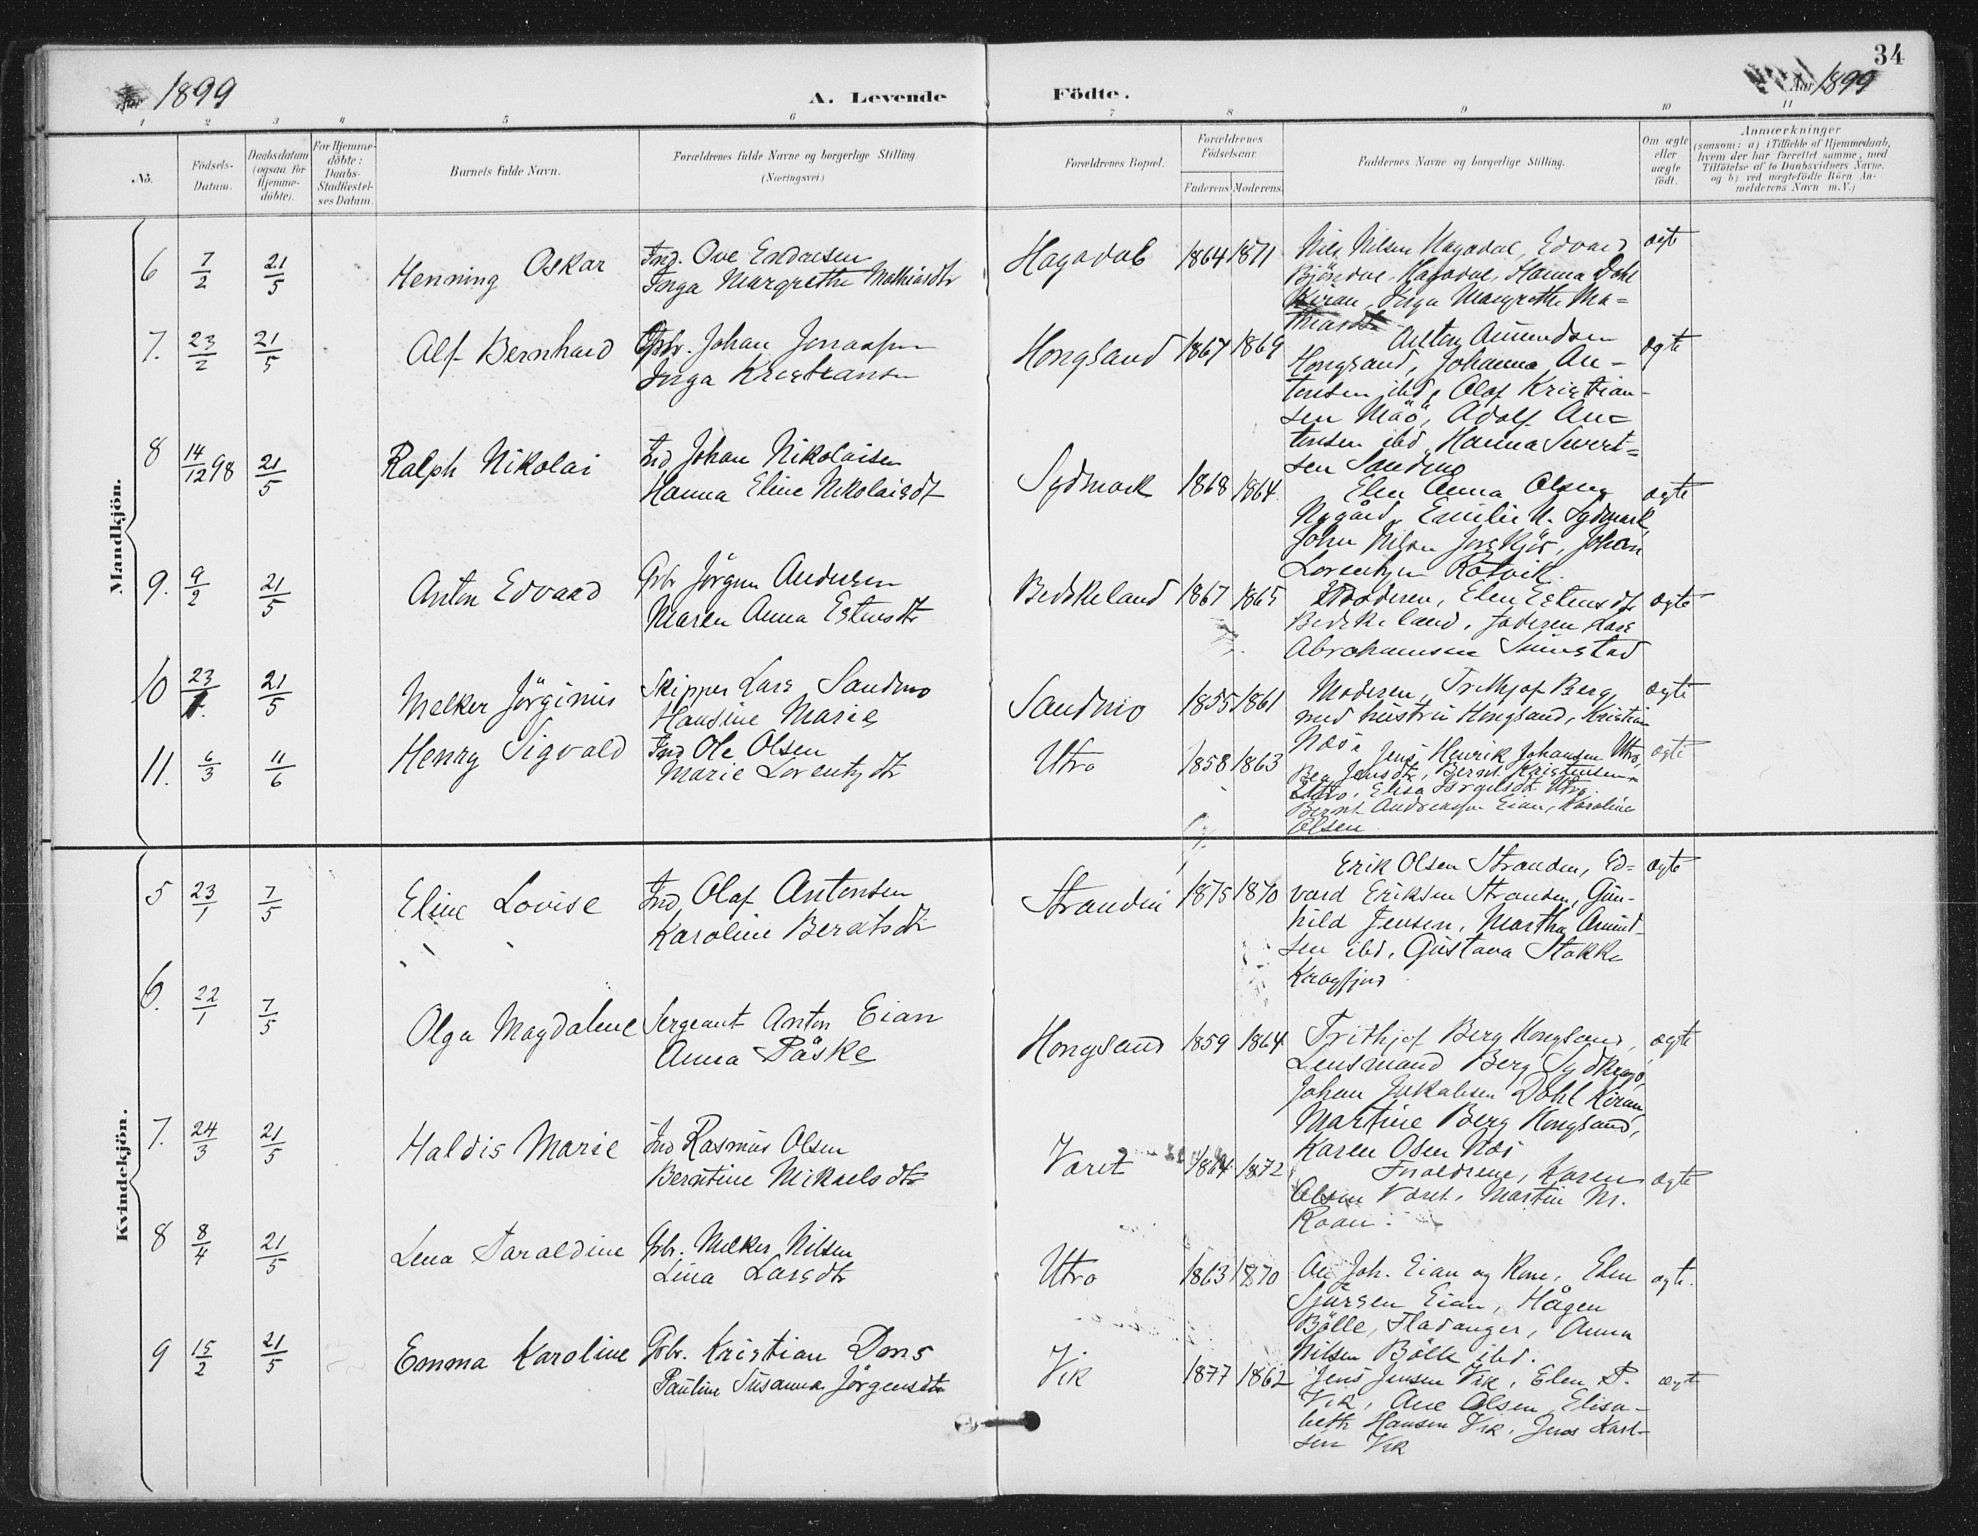 34
Aar 1899
A. Levende Födte.
Aar 1899
1 2 3 4 5 6 7 8 9 10 11
No.
Födsels-Datum.
Daabsdatum (ogsaa for Hjemmedöbte).
For Hjemmedöbte: Daabs-Stadfæstelses Datum.
Barnets fulde Navn.
Forældrenes fulde Navne og borgerlige Stilling.
(Næringsvei.)
Forældrenes Bopæl.
Forældrenes Födselsaar.
Faderens Moderens
Faddernes Navne og borgerlige Stilling.
Om ægte eller uægte födt.
Anmærkninger
(saasom: a) i Tilfælde af Hjemmedaab, hvem der har forrettet samme, med Tilföielse af to Daabsvidners Navne, og b) ved uægtefödte Börn Anmelderens Navn m.V.)
Mandkjön.
6 7/2 21/5 Henning Oskar
Ind. Ove Endresen
Inga Margrethe Mathiasdtr
Hagadal 1864 1871
Nils Nilsen Hagadal, Edvard
Björndal Hagadal, Hanna Dahl
Kiran, Inga Margrethe Ma=
thiasdtr
ægte
7. 23/2 21/5 Alf Bernhard
Gbr. Johan Jonassen
Inga Kristiansen
Hongsand 1867 1869
Anton Amundsen
Hongsand, Johanna An-
tonsen ibd, Olaf Kristian-
sen Măö, Adolf An=
tonsen ibd, Hanna Sivert=
sen Sandmo
ægte
8 14/12 98 21/5 Ralph Nikolai
Ind Johan Nikolaisen
Hanna Eline Nikolaisdt
Sydmark 1868 1864
Elen Anna Olsen
Nygård, Emilie N. Sydmark,
John Nilsen Johan
Lorentzen Rötvik.
ægte
9. 9/2 21/5 Anton Edvard
Gbr Jörgen Andersen
Maren Anna Estensdtr
Beskeland 1867 1865
Moderen, Elen Estensdt
Beskeland, faderen Lars
Abrahamsen Sumstad
ægte
10 23/1. 21/5 Melker Jörginus
Skipper Lars Sandmo
Hansine Marie
Sandmo 1855 1861
Moderen, Frithjof Berg
med hustru Hongsand, Kristian
Næs.
ægte
11. 6/3 11/6 Henry Sigvald
Ind Ole Olsen
Marie Lorentzdtr
Utro 1858 1863
Jens Henrik Johansen Utro,
Jensdtr, Bernt Kristensen
Utro, Elisa Israelsdt Utro.
Bernt Andreassen Eian, Karoline
Olsen
ægte
Kvindekjön.
5 23/1 7/5 Eline Lovise
Ind Olaf Antonsen
Karoline Berntsdtr
Stranden 1875 1870
Erik Olsen Stranden, Ed=
vard Eriksen Stranden, Gun-
hild Jensen, Martha Amund-
sen ibd, Gustava Stokke
Kragsfjord
ægte
6. 22/1 7/5 Olga Magdalene
Sergeant Anton Eian
Anna Påske
Hongsand 1859 1864
Frithjof Berg Hongsand,
Lensmand Berg Sydkrogö,
Johan Jakobsen Dahl Kiran
Martine Berg Hongsand,
Karen Olsen Næs
ægte
7. 24/3 21/5 Haldis Marie
Ind Rasmus Olsen
Berntine Mikaelsdtr
Varet 1864 1872
Forældrene, Karen
Olsen Varet, Martin M.
Roan.
ægte
8 8/4 21/5 Lena Taraldine
Gbr. Melker Nilsen
Lina Larsdtr
Utro 1863 1870
An. Joh. Eian og Kone, Elen
Sjursen Eian, Hågen
Bölle, Fladanger, Anna
Nilsen Bölle ibd.
ægte.
9 15/2 21/5 Emma Karoline
Gbr. Kristian Dons
Pauline Susanna Jörgensdtr
Vik 1877 1862
Jens Jensen Vik, Elen P.
Vik, Ane Olsen, Elisa-
beth Hansen Vik, Jens Karl-
sen Vik
ægte